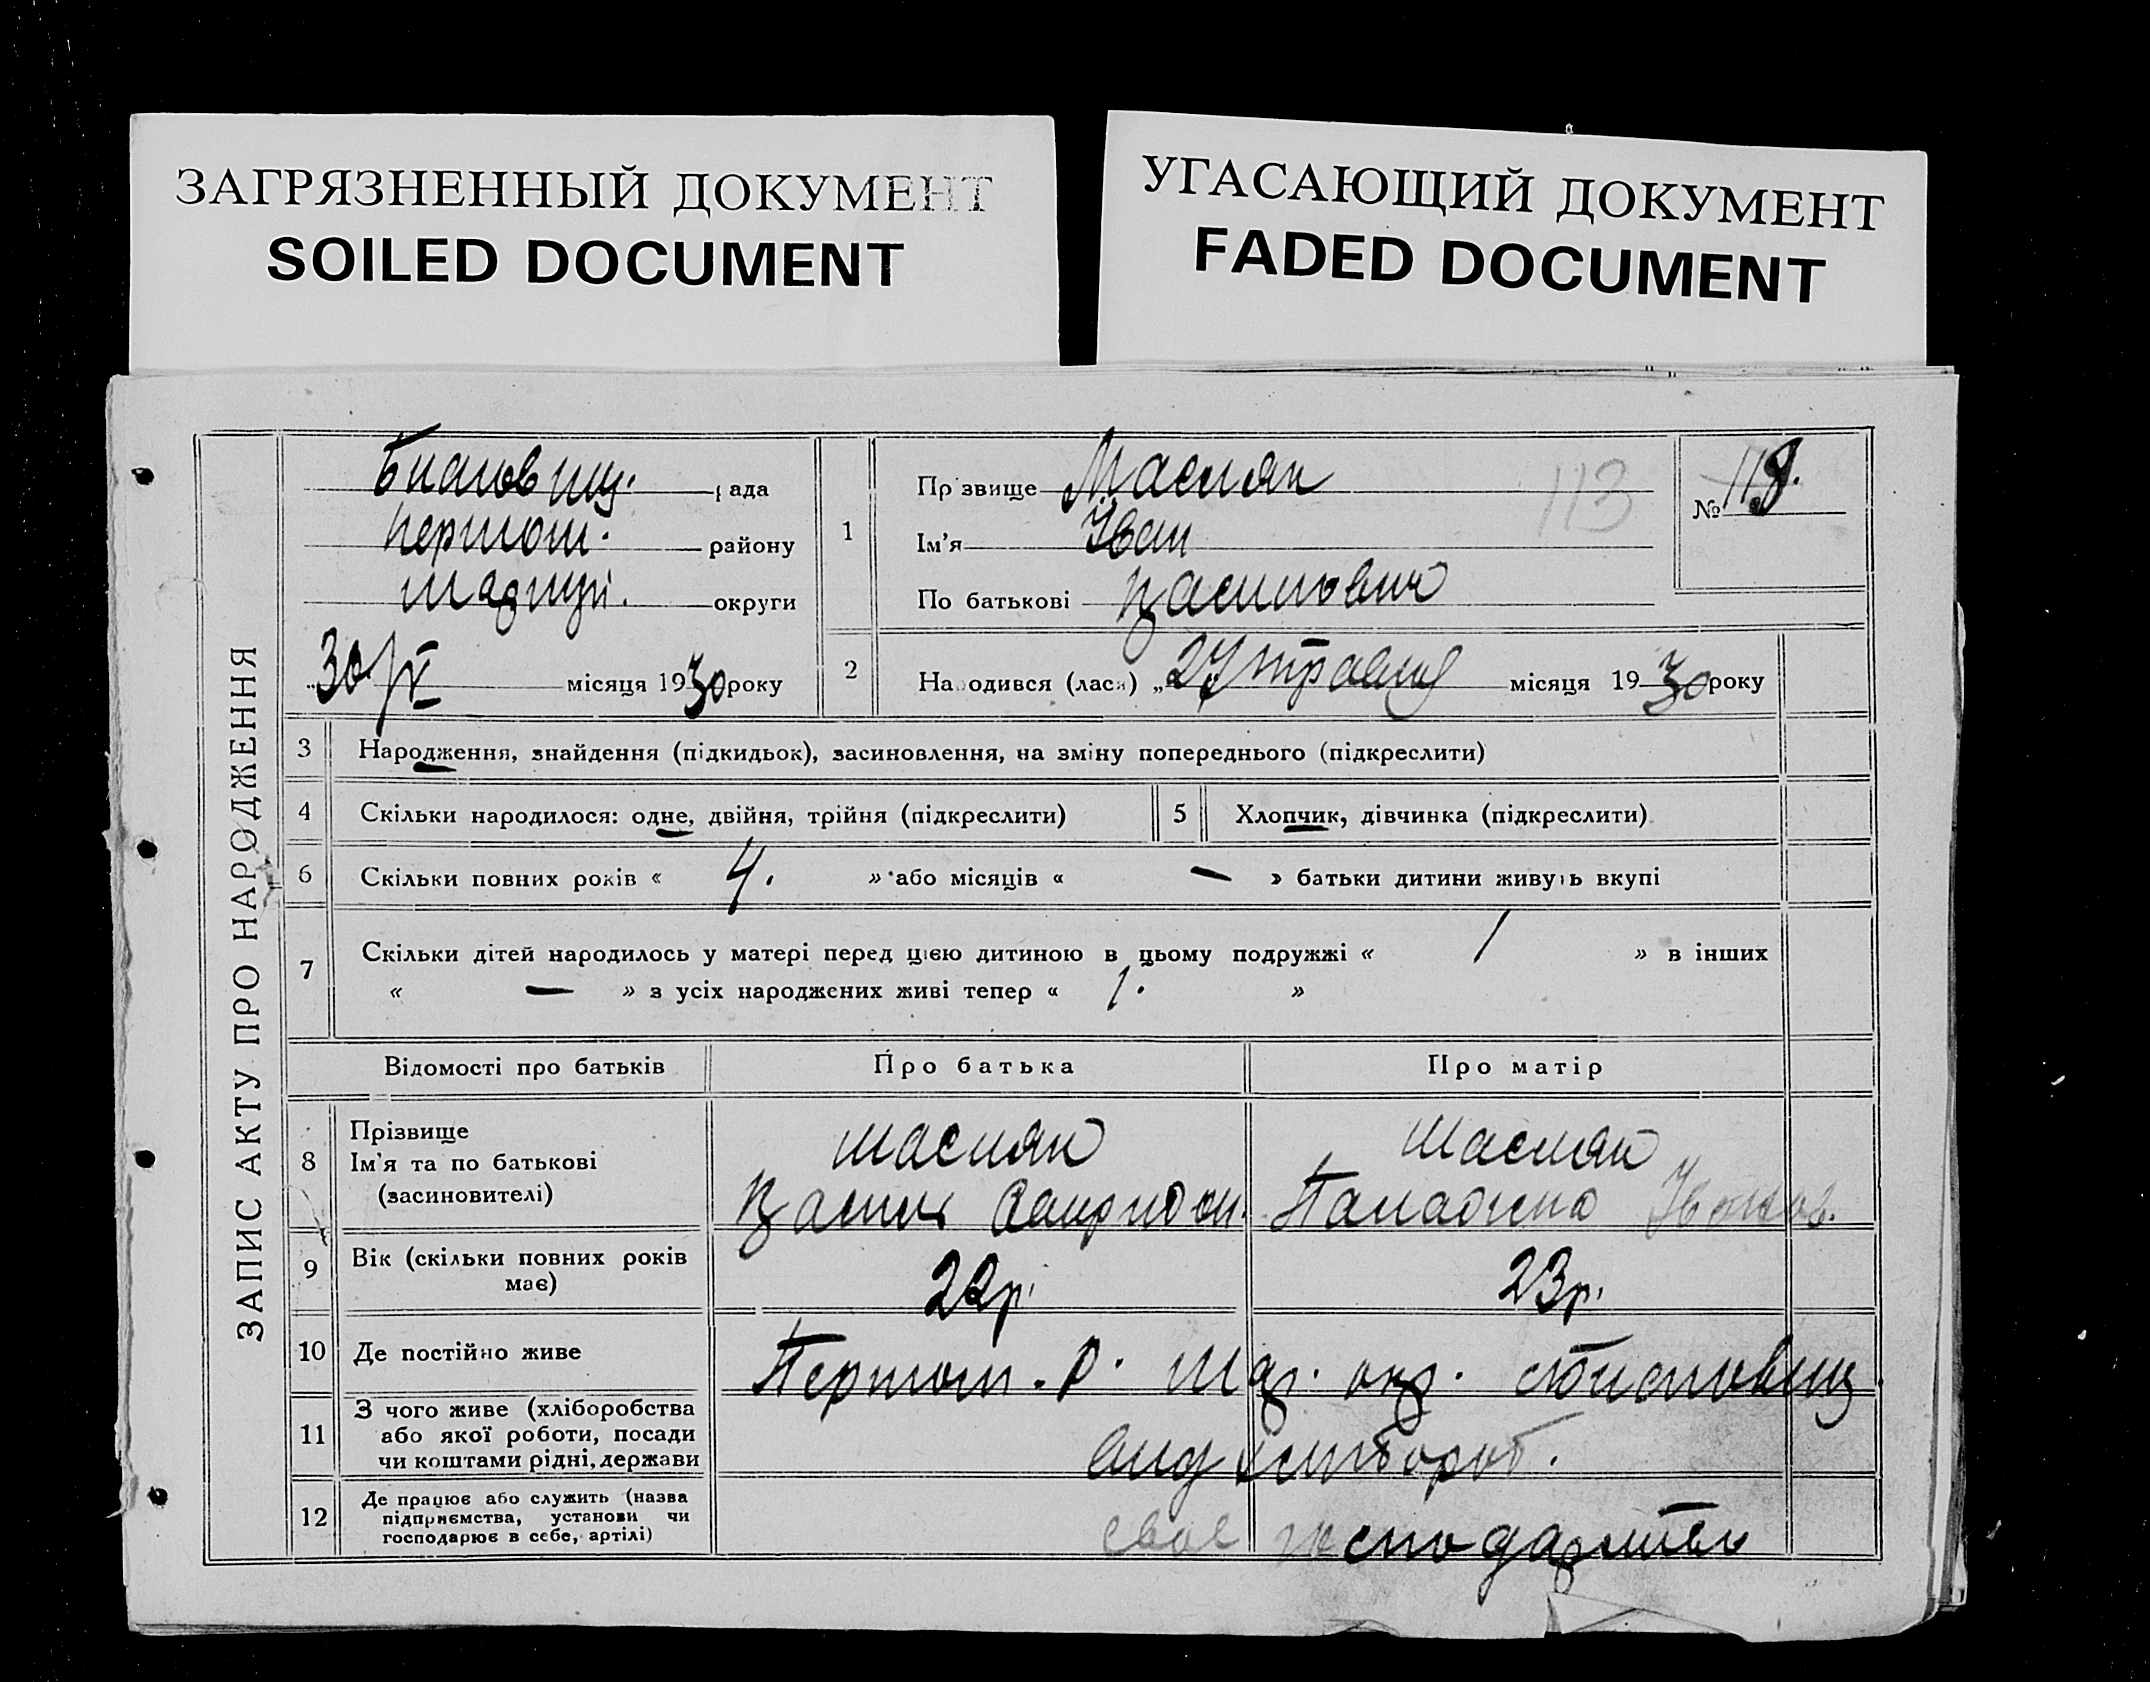 ЗАГРЯЗНЕННЫЙ ДОКУМЕНТ
SOILED DOCUMENT
УГАСАЮЩИЙ ДОКУМЕНТ
FADED DOCUMENT
ЗАПИС АКТУ ПРО НАРОДЖЕННЯ
рада
району
округи
30/VI місяця 1930 року
1
Прізвище Маслян
Ім'я Іван
По батькові
113
№ 118.
2
Народився (лася) „27 травня місяця 1930 року
3 Народження, знайдення (підкидьок), засиновлення, на зміну попереднього (підкреслити)
4 Скільки народилося: одне, двійня, трійня (підкреслити)
5 Хлопчик, дівчинка (підкреслити)
6 Скільки повних років « 4. » або місяців « — » батьки дитини живуть вкупі
7 Скільки дітей народилось у матері перед цією дитиною в цьому подружжі « 1 » в інших
« — » з усіх народжених живі тепер « 1. »
Відомості про батьків
Про батька
Про матір
8 Прізвище
Ім'я та по батькові
(засиновителі)
Маслян
Маслян
9 Вік (скільки повних років
має)
22р.
23р.
10 Де постійно живе
11 З чого живе (хліборобства
або якої роботи, посади
чи коштами рідні, держави
12 Де працює або служить (назва
підприємства, установи чи
господарює в себе, артілі)
своє господарство